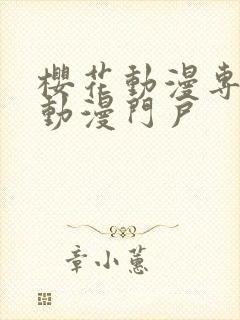 櫻花動漫專
動漫門戶
章小蕙